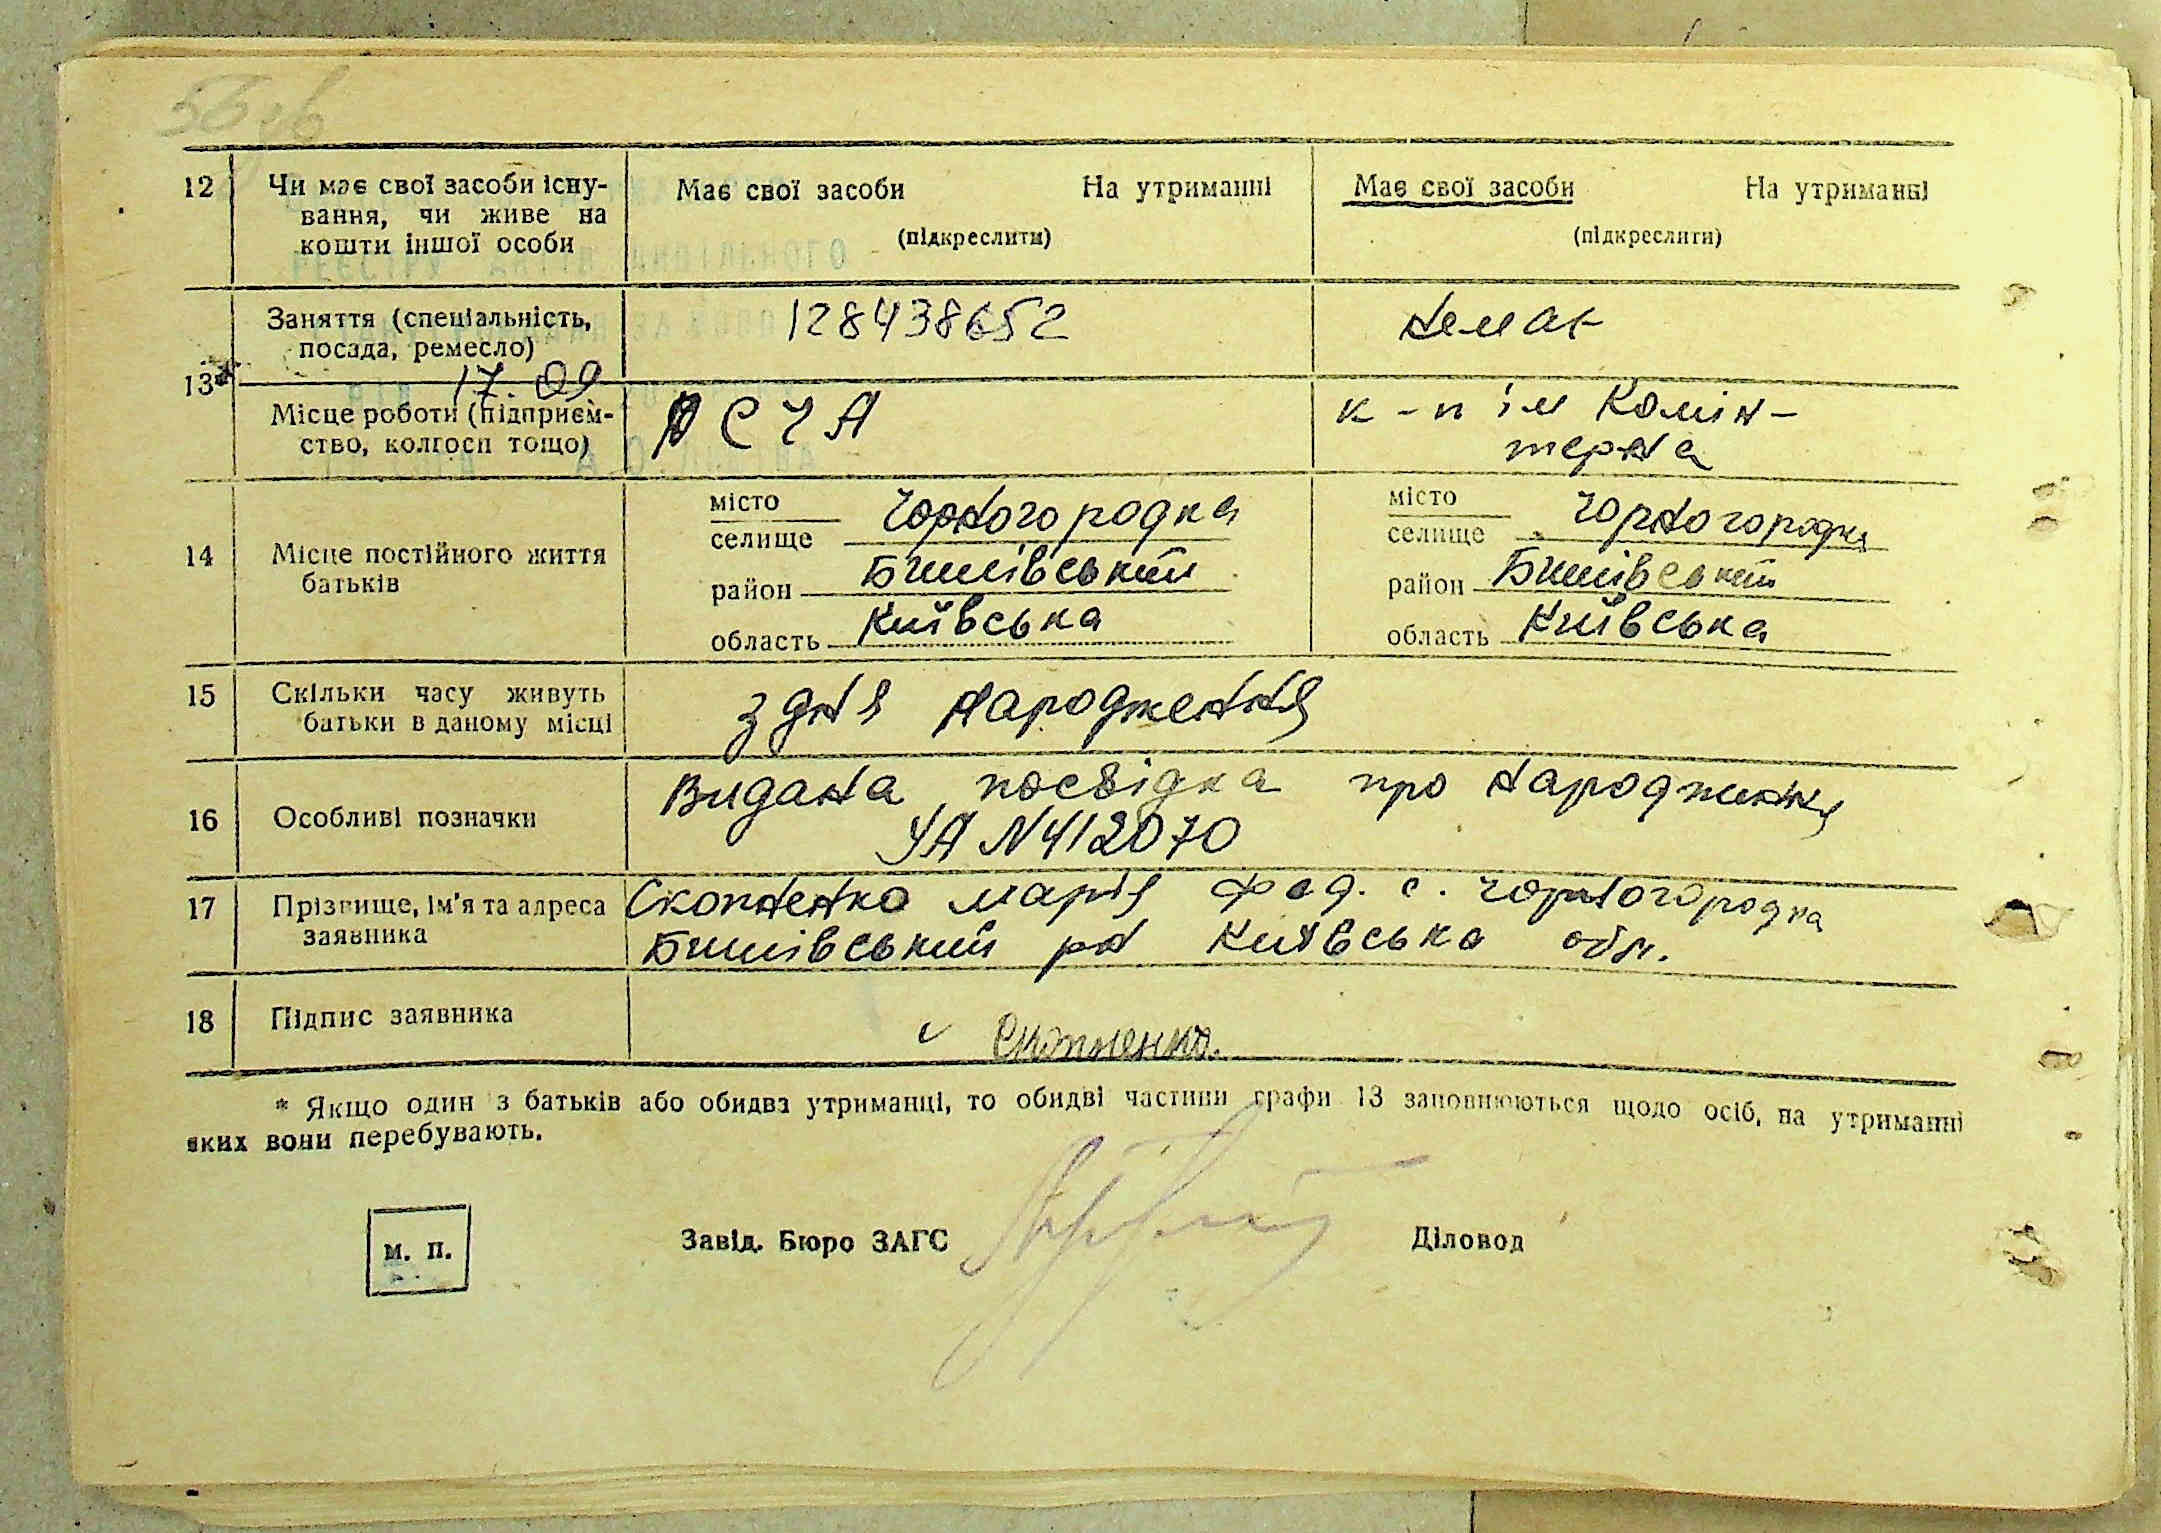 56 об
12 Чи має свої засоби існу- Має свої засоби На утриманні Має свої засоби На утриманні
вання, чи живе на
кошти іншої особи (підкреслити) (підкреслити)
Заняття (спеціальність, 128438652 немає
посада, ремесло)
17. 09
13* Місце роботи (підприєм- РСЧА к-п ім Комін-
ство, колгосп тощо) терна
місто Чорногородка місто Чорногородка
селище селище
14 Місце постійного життя район Бишівський район Бишівський
батьків
область Київська область Київська
15 Скільки часу живуть з дня народження
батьки в даному місці
16 Особливі позначки Видана посвідка про народження
УА N 412070
17 Прізвище, ім'я та адреса Скопненко Марія Фед. с. Чорногородка
заявника Бишівський рн Київська обл.
18 Підпис заявника Скопненко.
* Якщо один з батьків або обидва утриманці, то обидві частини графи 13 заповнюються щодо осіб, на утриманні
яких вони перебувають.
м. п. Завід. Бюро ЗАГС Діловод